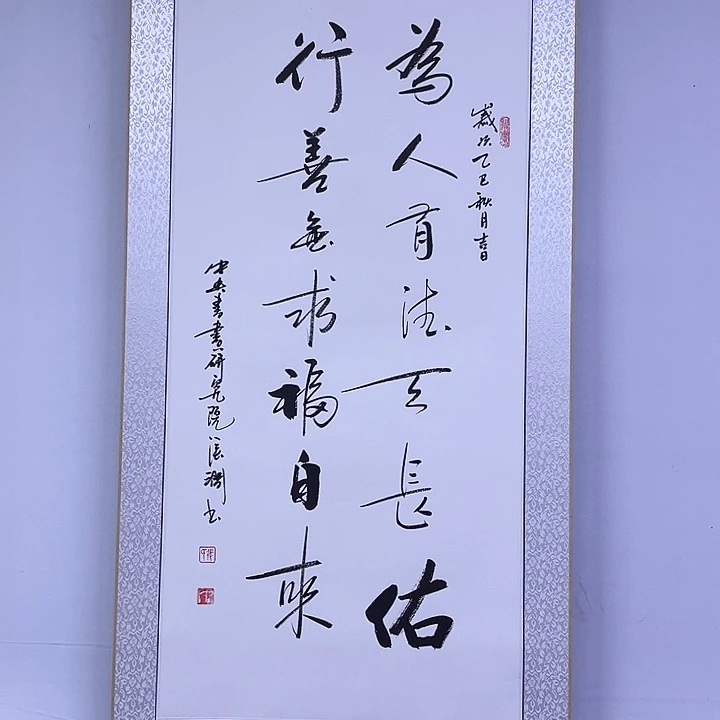 歲次乙巳秋月吉日
為人有德天長佑
行善無求福自來
中央書畫研究院淵书